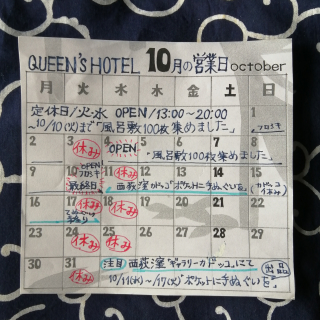 QUEEN'S HOTEL 10月の営業日 october
月 火 水 木 金 土 日
定休日/火・水 OPEN/13:00~20:00
1
~10/10(火)まで「風呂敷100枚集めました」
2 3 休み 4 OPEN 5 6 7 8
「風呂敷100枚集めました」
9 10 OPEN 最終日 11 休み 12 13 14 15
西荻窪
休み
16 17 休み 18 19 20 21 22
23 24 休み 25 休み 26 27 28 29
30 31 休み
注目 西荻窪「ギャラリーカドッコ」にて
10/11(水)~/17(火)「ポケットに手ぬぐいを」出品